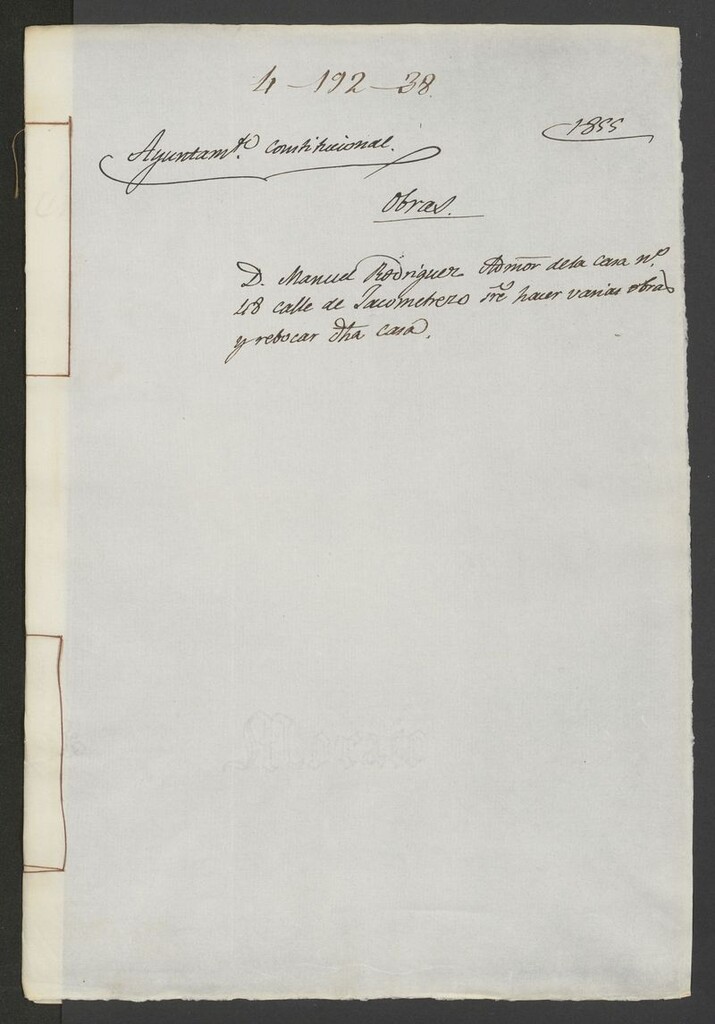 4-192-38
1855
Ayuntam.to Constitucional.
Obras.
D. Manuel Rodriguez Admor dela casa n.o
48 calle de Jacometrezo sre hacer varias obras
y rebocar dha casa.